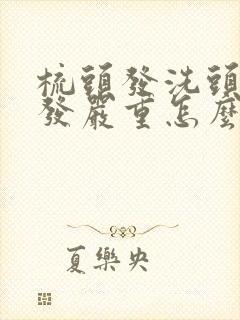 梳頭發洗頭
發嚴重怎麼
夏樂央